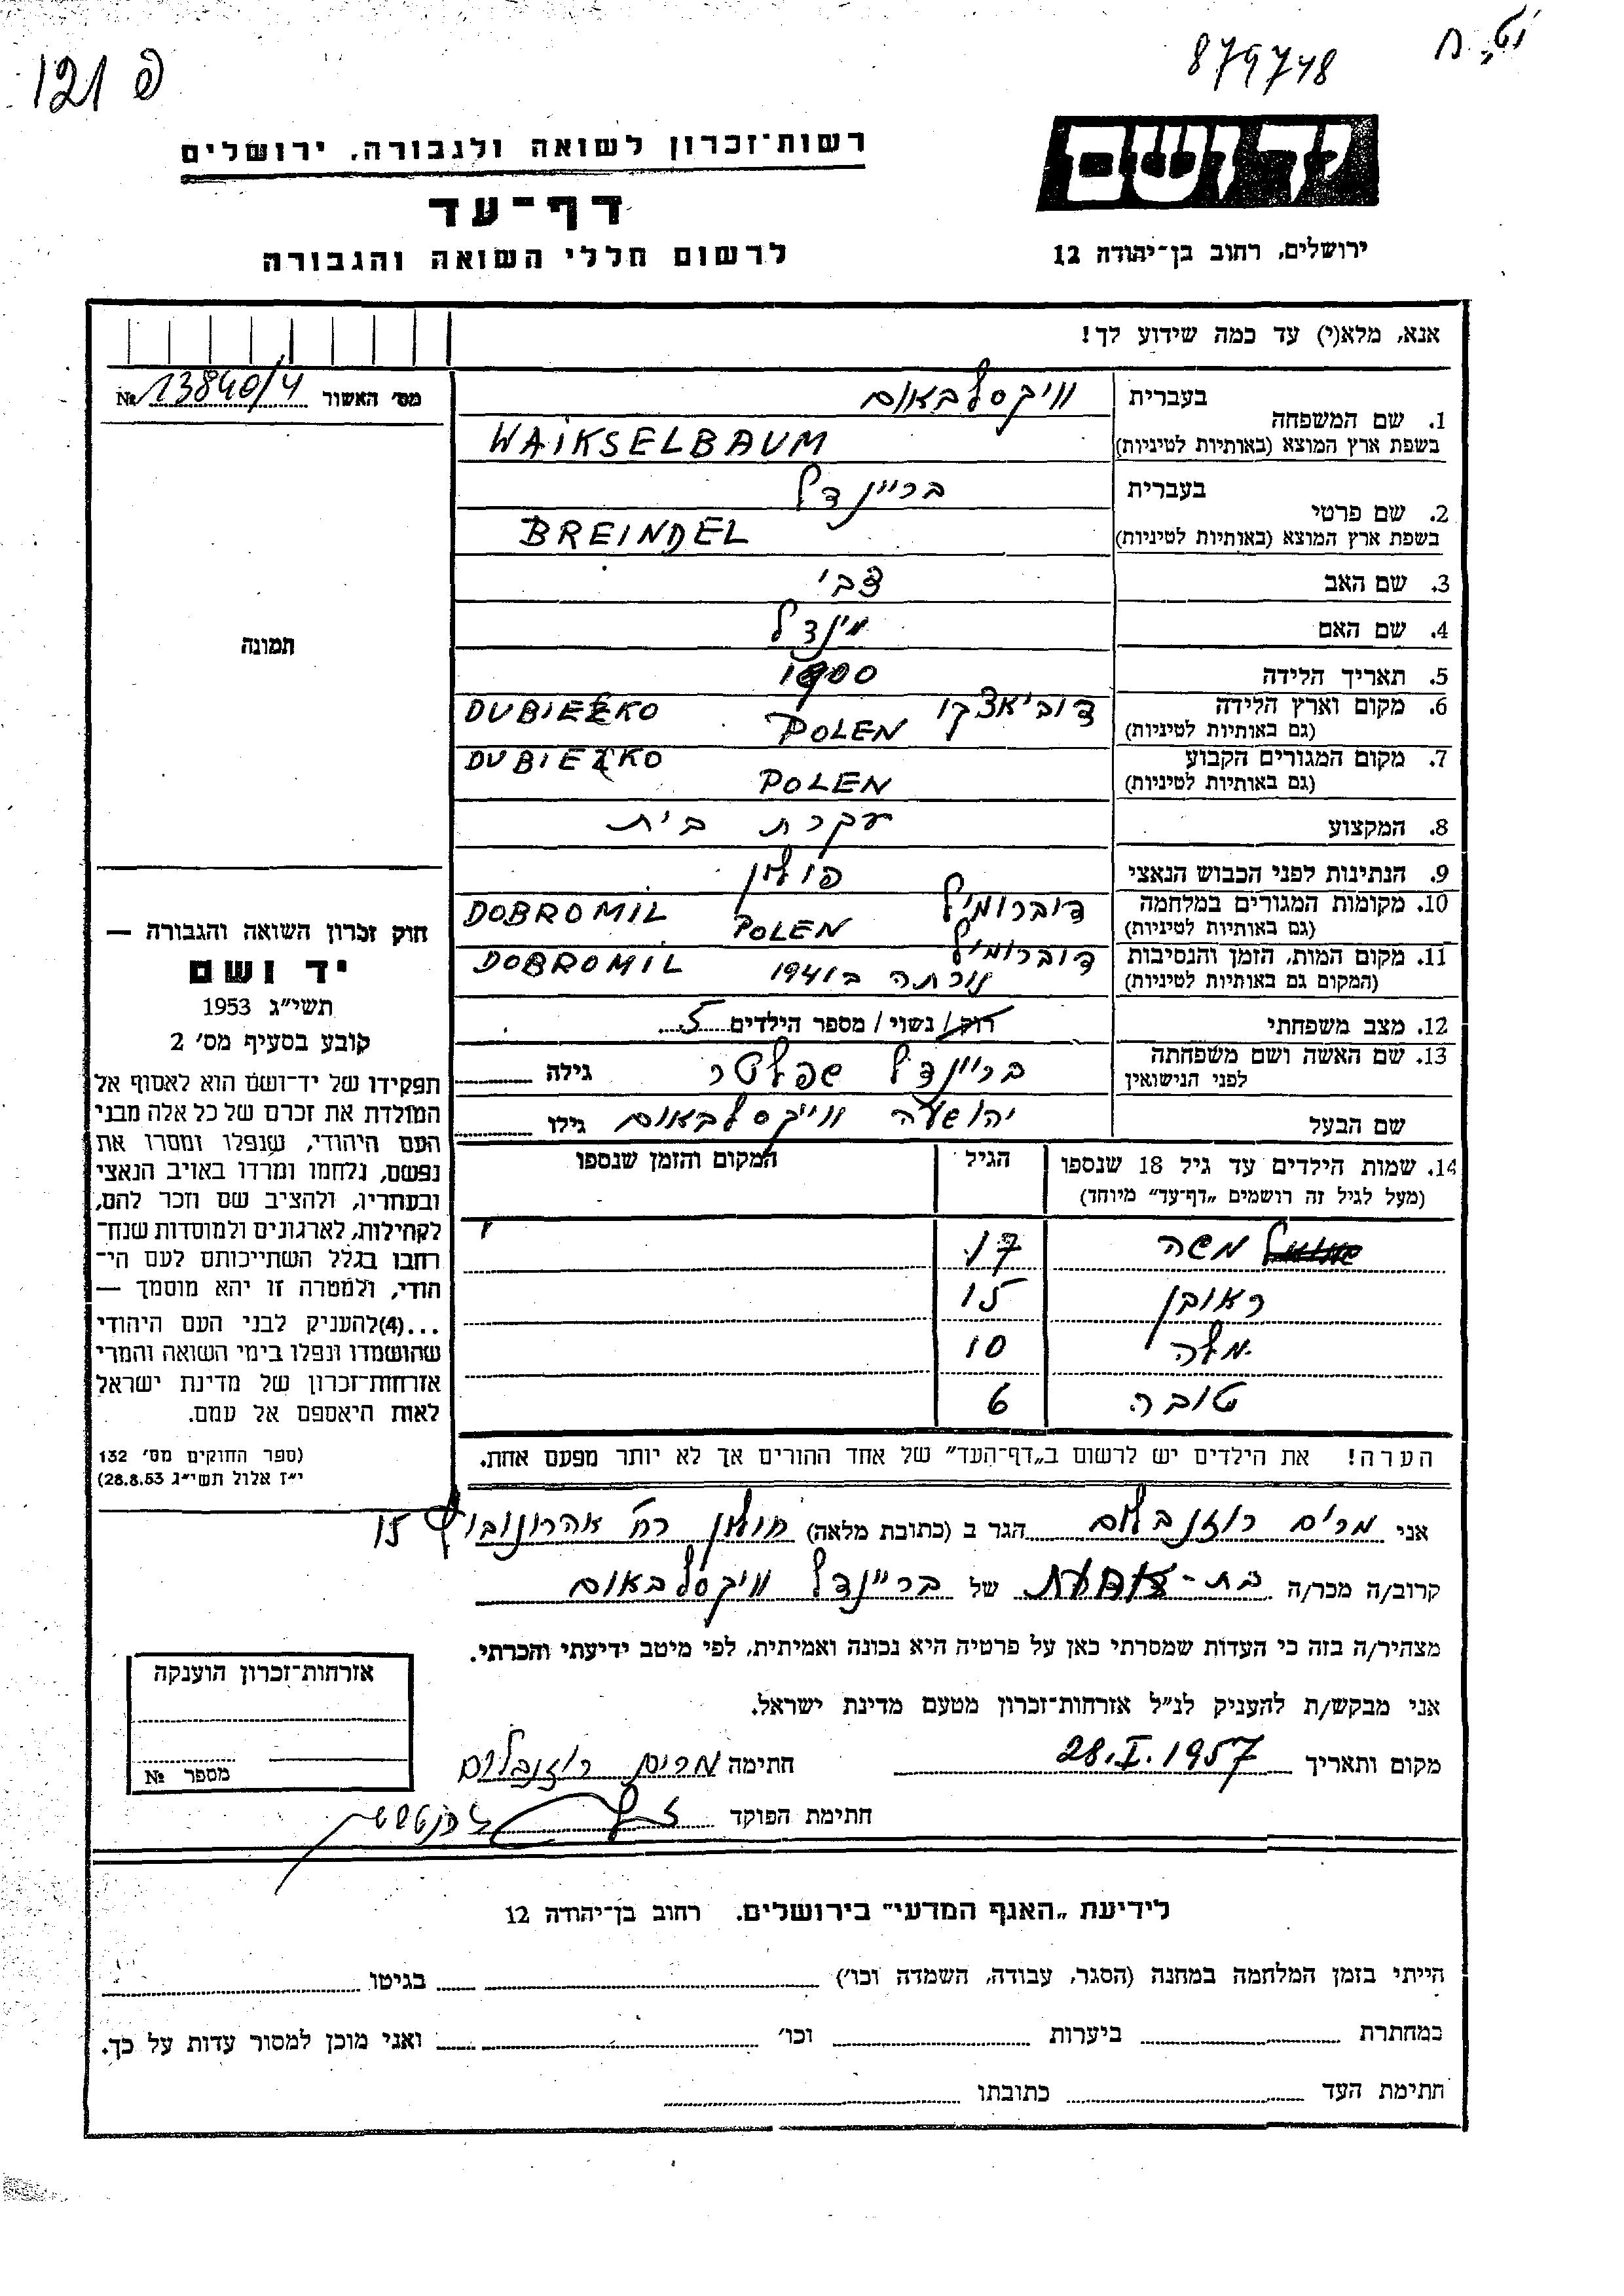 פ 121
879748
יד ושם
רשות־זכרון לשואה ולגבורה. ירושלים
דף־עד
ירושלים, רחוב בן־יהודה 12
לרשום חללי השואה והגבורה
אנא, מלא(י) עד כמה שידוע לך!
מס׳ האשור № 13840/4
1. שם המשפחה
בעברית וויקסלבאום
בשפת ארץ המוצא (באותיות לטיניות) WAIKSELBAUM
2. שם פרטי
בעברית בריינדל
בשפת ארץ המוצא (באותיות לטיניות) BREINDEL
3. שם האב צבי
4. שם האם מינדל
5. תאריך הלידה 1900
6. מקום וארץ הלידה דוביאצקו DUBIEZKO
(גם באותיות לטיניות) POLEN
7. מקום המגורים הקבוע DUBIEZKO
(גם באותיות לטיניות) POLEN
8. המקצוע עקרת בית
9. הנתינות לפני הכבוש הנאצי פולין
10. מקומות המגורים במלחמה דוברומיל DOBROMIL
(גם באותיות לטיניות) POLEN
11. מקום המות, הזמן והנסיבות דוברומיל DOBROMIL
(המקום גם באותיות לטיניות) נורתה ב 1941
12. מצב משפחתי רוק/נשוי/ מספר הילדים 5
13. שם האשה ושם משפחתה בריינדל שפלטר גילה
לפני הנישואין
שם הבעל יהושעה וויקסלבאום גילו
14. שמות הילדים עד גיל 18 שנספו הגיל המקום והזמן שנספו
(מעל לגיל זה רושמים „דף־עד״ מיוחד)
משה 17
ראובן 15
מלה 10
טובה 6
הערה! את הילדים יש לרשום ב„דף־העד״ של אחד ההורים אך לא יותר מפעם אחת.
תמונה
חוק זכרון השואה והגבורה —
יד ושם
תשי״ג 1953
קובע בסעיף מס׳ 2
תפקידו של יד־ושם הוא לאסוף אל
המולדת את זכרם של כל אלה מבני
העם היהודי, שנפלו ומסרו את
נפשם, נלחמו ומרדו באויב הנאצי
ובעוזריו, ולהציב שם וזכר להם,
לקהילות, לארגונים ולמוסדות שנח־
רבו בגלל השתייכותם לעם הי־
הודי, ולמטרה זו יהא מוסמך —
...(4)להעניק לבני העם היהודי
שהושמדו ונפלו בימי השואה והמרי
אזרחות־זכרון של מדינת ישראל
לאות היאספם אל עמם.
(ספר החוקים מס׳ 132
י״ז אלול תשי״ג 28.8.53)
אני מרים רוזנבלום הגר ב (כתובת מלאה) חולון רח׳ אהרונוביץ 15
קרוב/ה מכר/ה בת- של בריינדל וויקסלבאום
מצהיר/ה בזה כי העדות שמסרתי כאן על פרטיה היא נכונה ואמיתית, לפי מיטב ידיעתי והכרתי.
אני מבקש/ת להעניק לנ״ל אזרחות־זכרון מטעם מדינת ישראל.
מקום ותאריך 28.I.1957 חתימה מרים רוזנבלום
חתימת הפוקד
אזרחות־זכרון הוענקה
מספר №
לידיעת „האגף המדעי״ בירושלים. רחוב בן־יהודה 12
הייתי בזמן המלחמה במחנה (הסגר, עבודה, השמדה וכו׳) בגיטו
במחתרת ביערות וכו׳ ואני מוכן למסור עדות על כך.
חתימת העד כתובתו